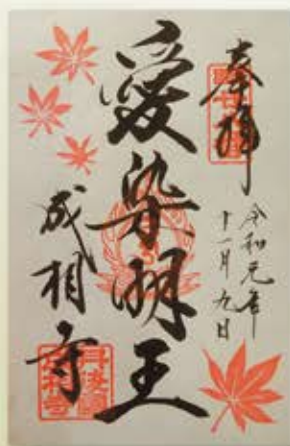 奉拝
令和元年
十一月九日
愛染明王
成相寺